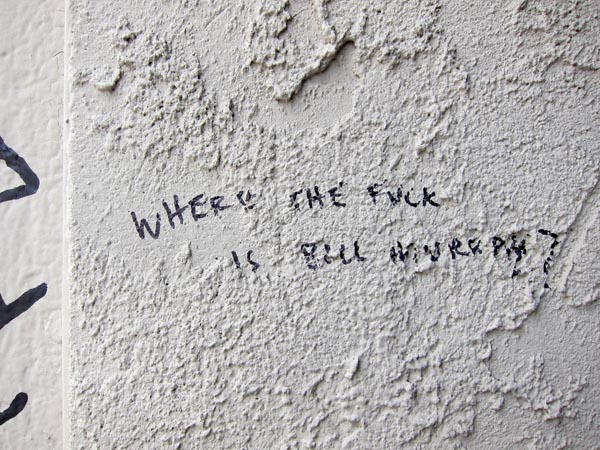 WHERE THE FUCK
IS BILL MURRAY?